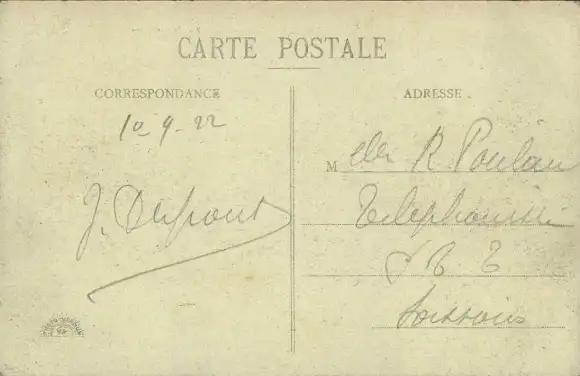 CARTE POSTALE
CORRESPONDANCE
ADRESSE
10-9-22
J. Dupont
M elle R. Poulain
Téléphoniste
P T T
Soissons